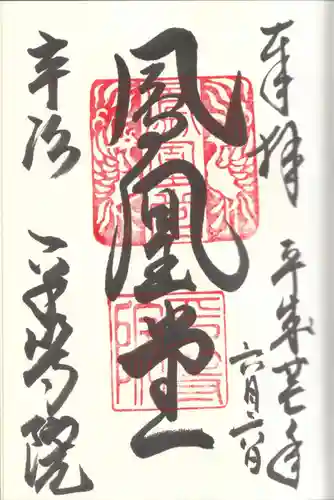 奉拝
平成廿七年
六月六日
鳳凰堂
宇治
平等院